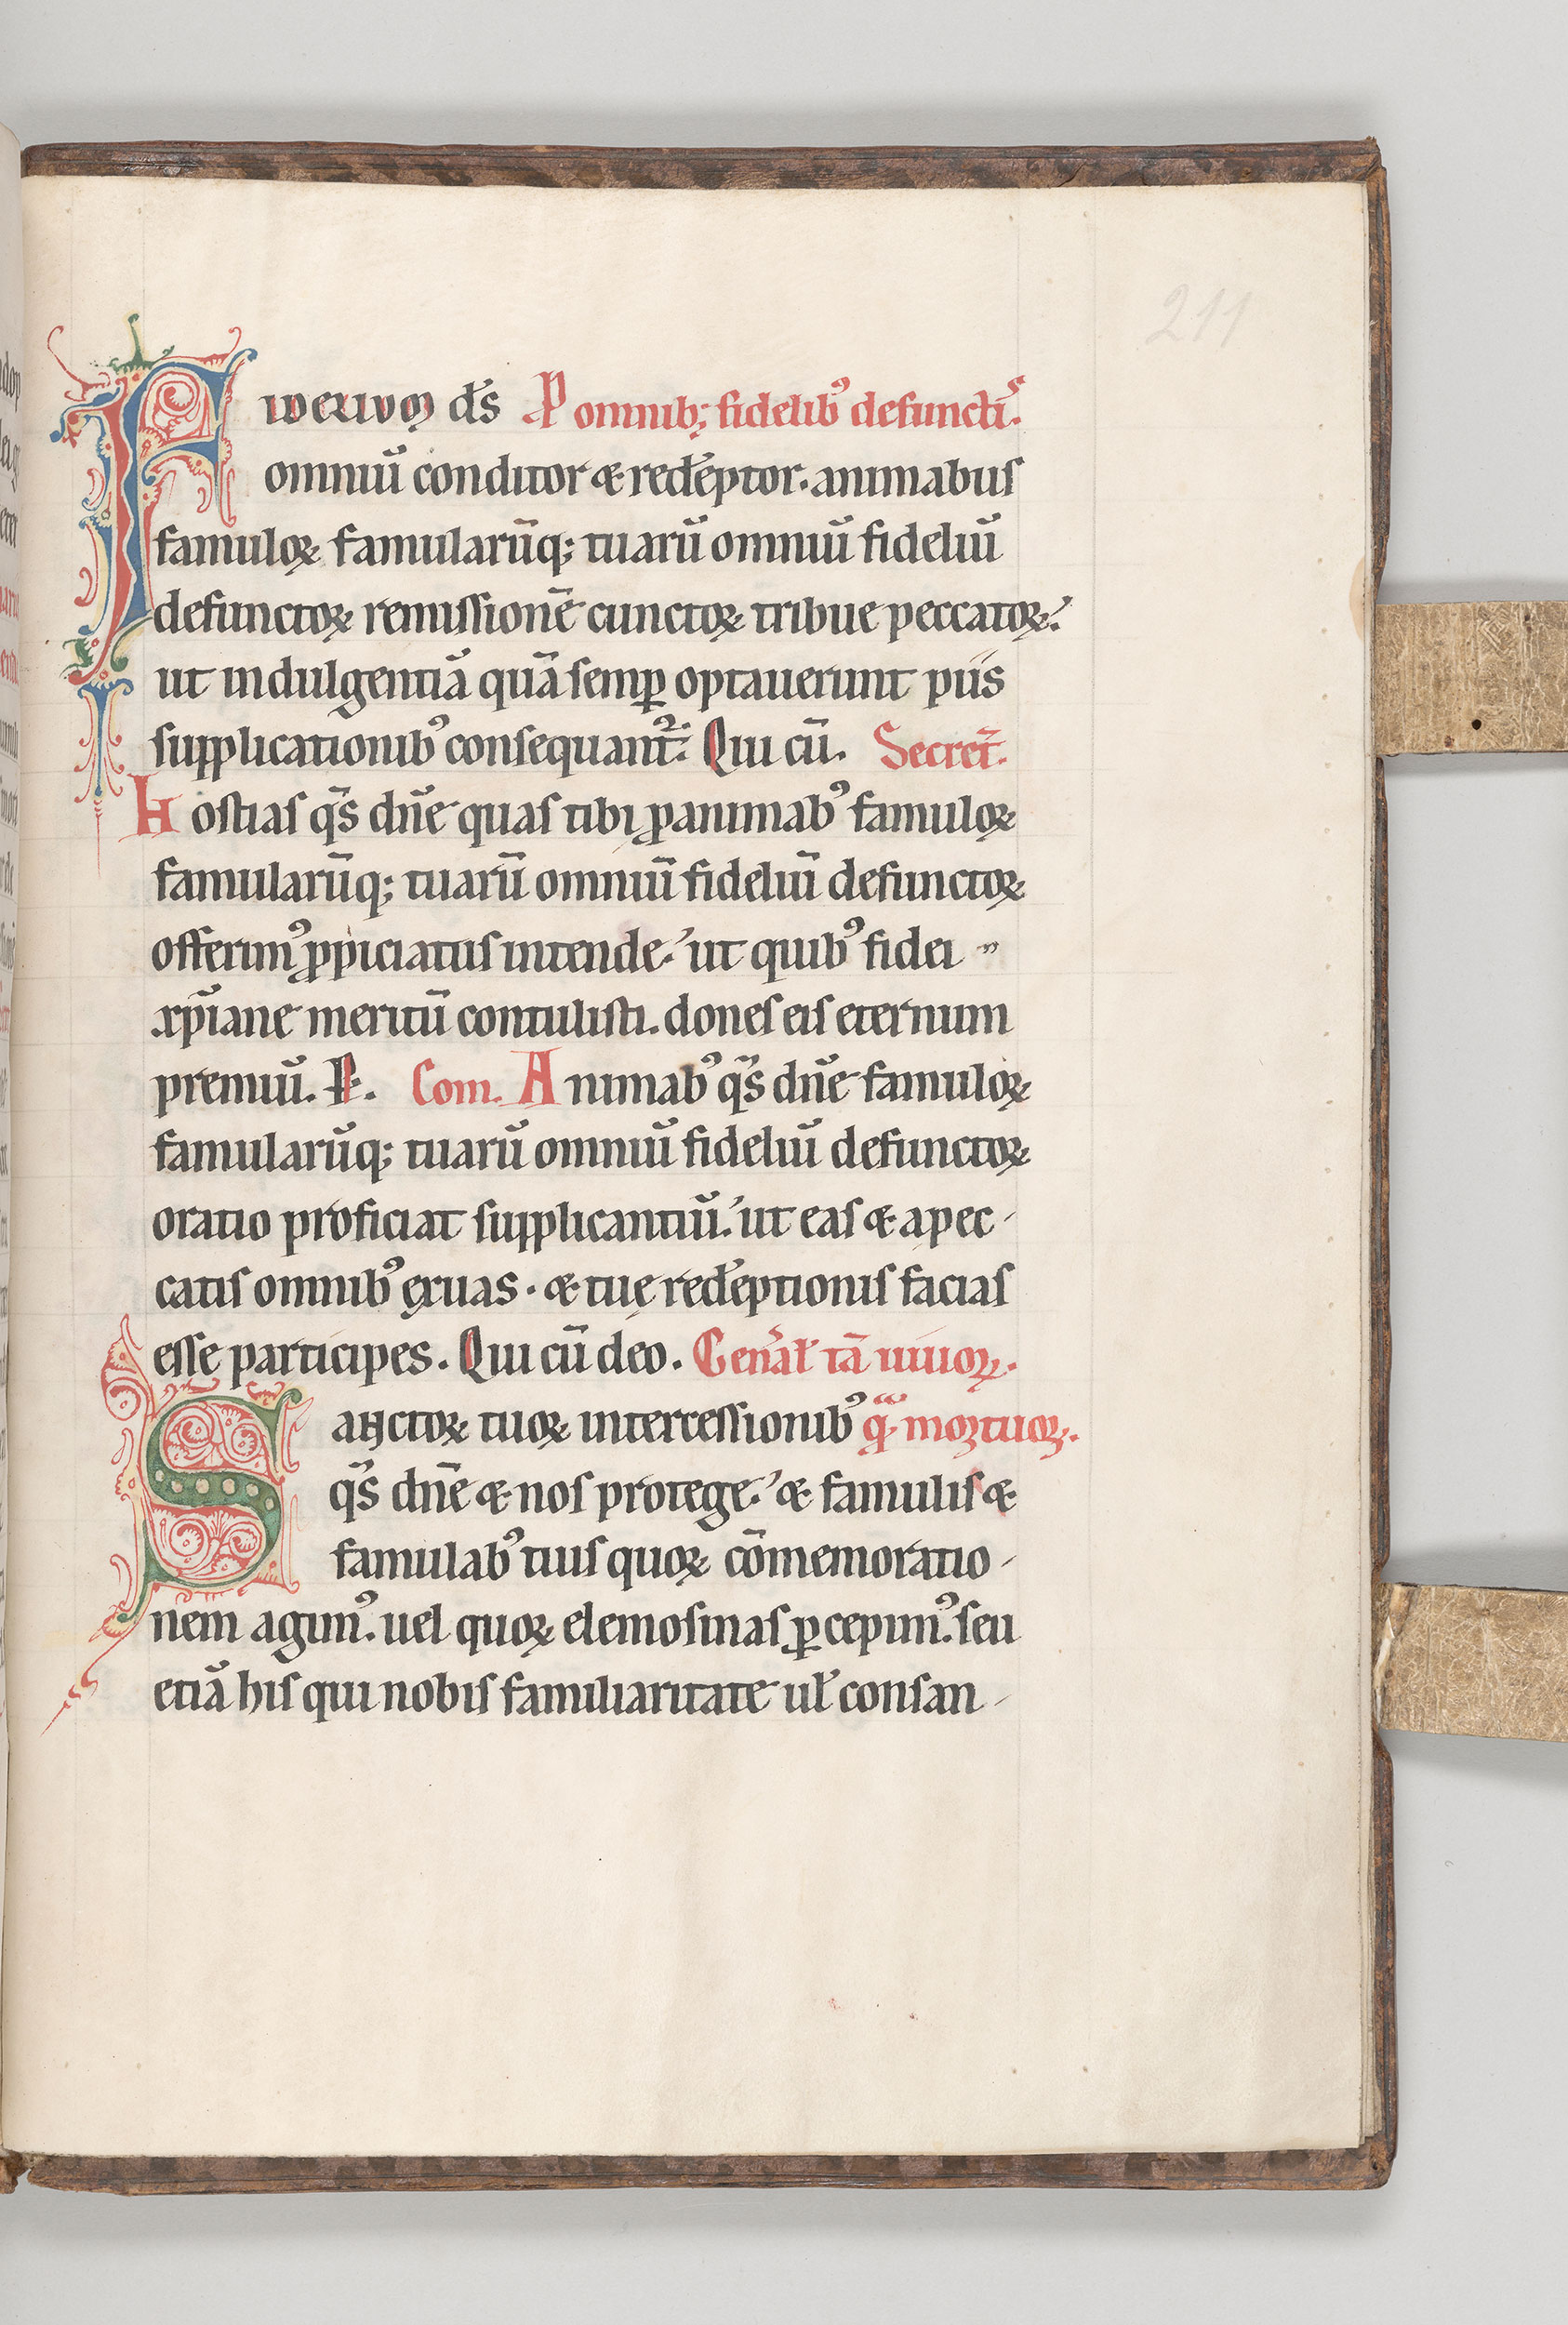 211
Fidelium ds̄ P omnib; fidelibꝰ defunctis
omniū conditor & redēptor. animabus
famuloꝝ famularūq; tuarū omniū fideliū
defunctoꝝ remissionē cunctoꝝ tribue peccatoꝝ.
ut indulgentiā quā semꝑ optauerunt piis
supplicationibꝰ consequant᷑. Qui cū. Secret̄.
Hostias qs̄ dn̄e quas tibi ꝓ animabꝰ famuloꝝ
famularūq; tuarū omniū fideliū defunctoꝝ
offerimꝰ ꝓpiciatus intende. ut quibꝰ fidei
xp̄iane meritū contulisti. dones eis eternum
premiū. P. Com. Animabꝰ qs̄ dn̄e famuloꝝ
famularūq; tuarū omniū fideliū defunctoꝝ
oratio proficiat supplicantiū. ut eas & a pec-
catis omnibꝰ exuas. & tuę redēptionis facias
esse participes. Qui cū deo. Genāl tā uiuoꝝ.
Sanctoꝝ tuoꝝ intercessionibꝰ qͣ mortuoꝝ.
qs̄ dn̄e & nos protege. & famulis &
famulabꝰ tuis quoꝝ cōmemoratio-
nem agimꝰ. uel quoꝝ elemosinas ꝑcepimꝰ. seu
etiā his qui nobis familiaritate ul̄ consan-